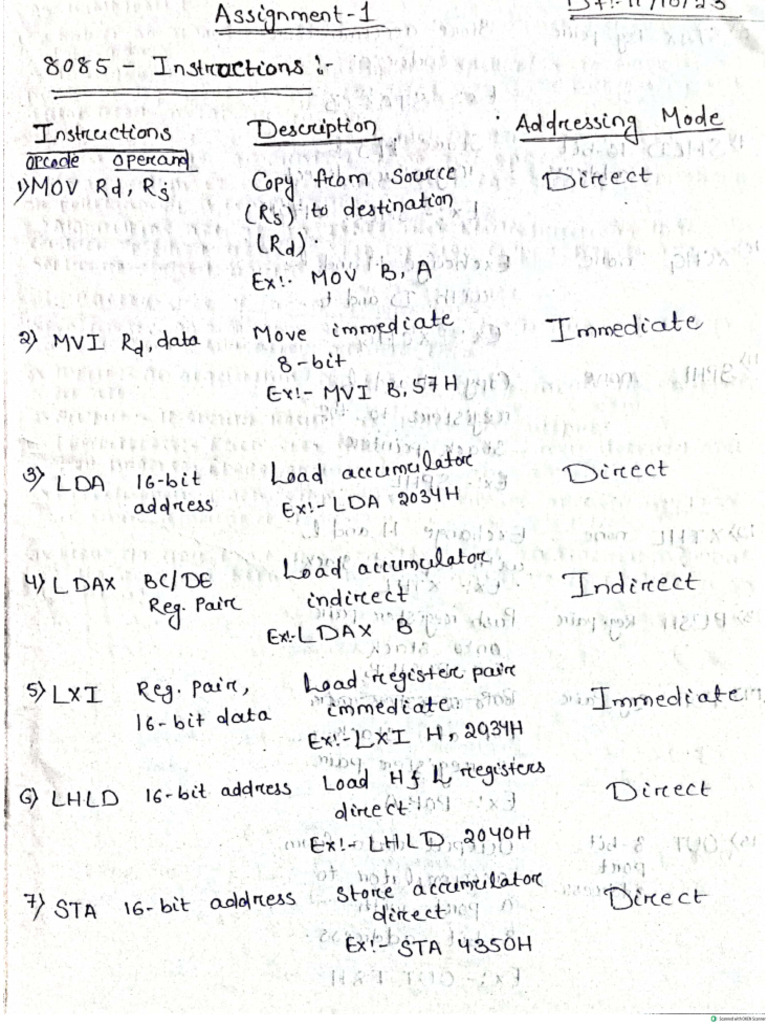 Assignment-1
8085 - Instructions :-
Instructions Description Addressing Mode
opcode operand
1) MOV Rd, Rs Copy from source Direct
(Rs) to destination
(Rd).
Ex:- MOV B, A
2) MVI Rd, data Move immediate Immediate
8-bit
Ex:- MVI B, 57H
3) LDA 16-bit Load accumulator Direct
address Ex:- LDA 2034H
4) LDAX BC/DE Load accumulator Indirect
Reg. Pair indirect
Ex:- LDAX B
5) LXI Reg. Pair, Load register pair Immediate
16-bit data immediate
Ex:- LXI H, 2034H
6) LHLD 16-bit address Load H & L registers Direct
direct
Ex:- LHLD 2040H
7) STA 16-bit address Store accumulator Direct
direct
Ex:- STA 4350H
Scanned with OKEN Scanner